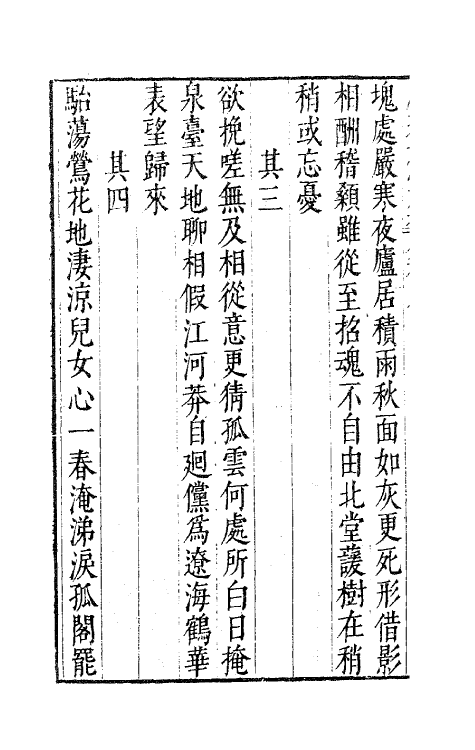 塊處嚴寒夜廬居積雨秋面如灰更死形借影
相酬稽顙雖從至招魂不自由北堂蘐樹在稍
稍或忘憂
其三
欲挽嗟無及相從意更猜孤雲何處所白日掩
泉臺天地聊相假江河莽自廻儻爲遼海鶴華
表望歸來
其四
駘蕩鶯花地淒涼兒女心一春淹涕淚孤閣罷